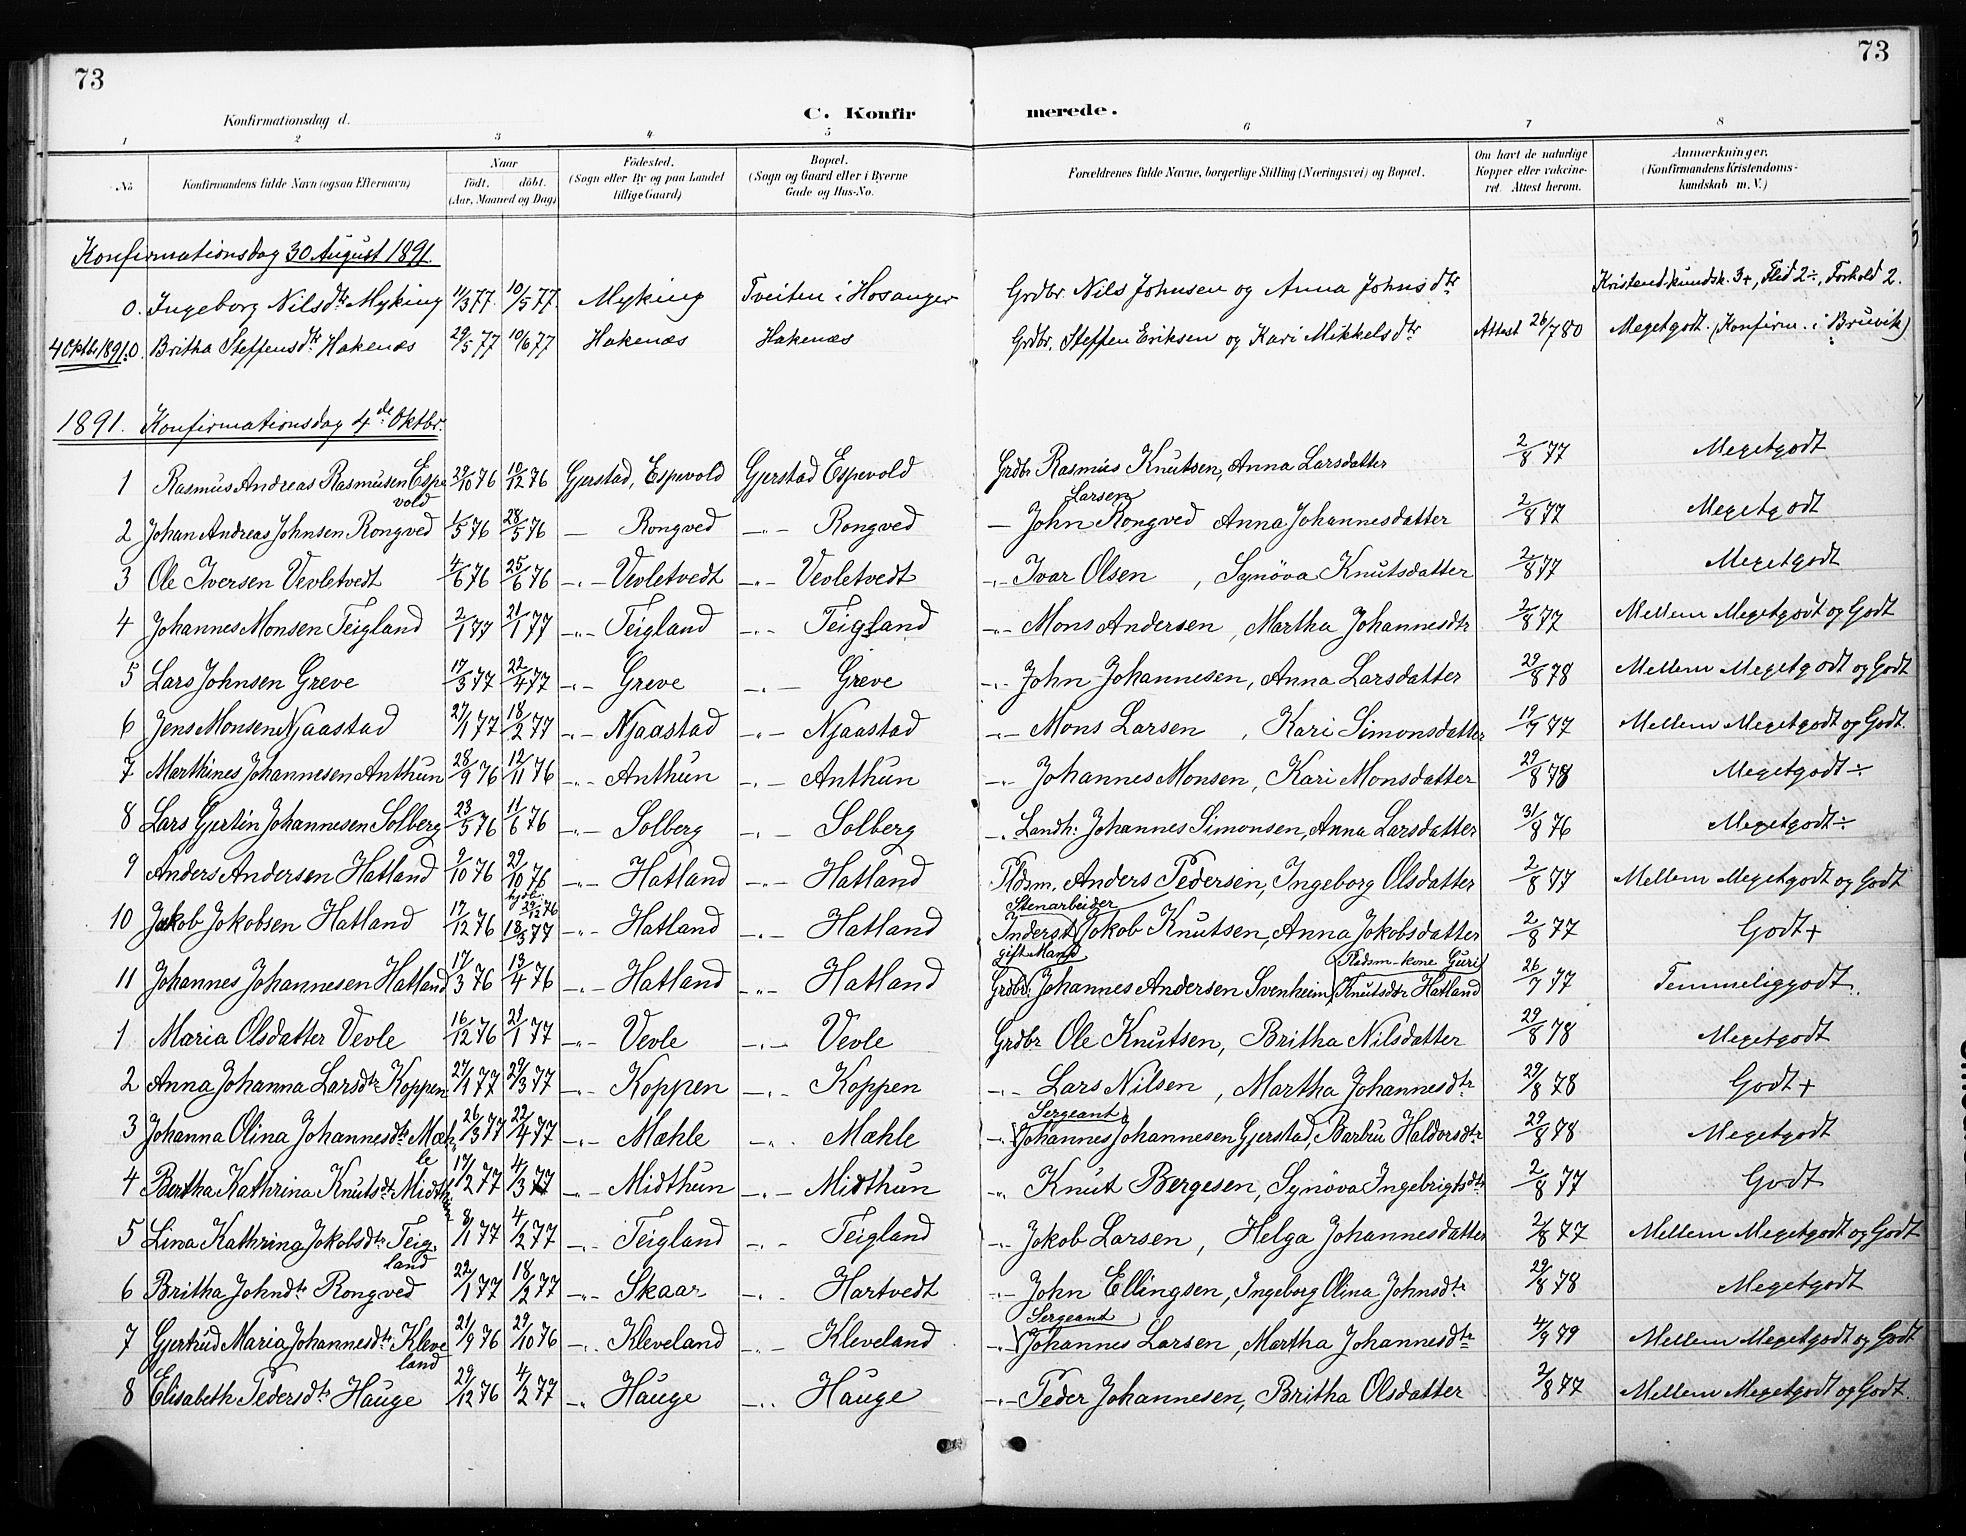 73
73
Konfirmationsdag d.
C. Konfir
merede.
1 2 3 4 5 6 7 8
No
Konfirmandens fulde Navn (ogsaa Efternavn)
Naar
födt. döbt.
(Aar, Maaned og Dag)
Födested.
(Sogn eller By og paa Landet
tillige Gaard)
Bopæl.
(Sogn og Gaard eller i Byerne
Gade og Hus-No.
Forældrenes fulde Navne, borgerlige Stilling (Næringsvei) og Bopæl.
Om havt de naturlige
Kopper eller vakcine-
ret. Attest herom.
Anmærkninger.
(Konfirmandens Kristendoms-
kundskab m. V.)
Konfirmationsdag 30 August 1891.
0. Ingeborg Nilsdtr Myking 11/3 77. 10/5 77. Myking Tveiten i Hosanger Grdbr. Nils Johnsen og Anna Johnsdtr Kristend.kundsk. 3+, Flid 2÷, Forhold 2.
4 Oktb. 1891. 0. Britha Steffensdtr Hakenæs 29/5 77 10/6 77 Hakenæs Hakenæs Grdbr. Steffen Eriksen og Kari Mikkelsdtr Attest 26/7 80 Megetgodt. (Konfirm. i Bruvik)
1891. Konfirmationsdag 4de Oktbr.
1 Rasmus Andreas Rasmusen Espe 29/10 76 10/12 76 Gjerstad, Espevold Gjerstad Espevold Grdbr Rasmus Knutsen, Anna Larsdatter 2/8 77 Megetgodt
vold
Larsen
2 Johan Andreas Johnsen Rongved 1/5 76 28/5 76 — Rongved -"- Rongved — John Rongved Anna Johannesdatter 2/8 77 Megetgodt
3 Ole Iversen Vevletvedt 4/6 76 25/6 76 -"- Vevletvedt -"- Vevletvedt -"- Ivar Olsen, Synöva Knutsdatter 2/8 77 Megetgodt
4 Johannes Monsen Teigland 2/1 77 21/1 77 -"- Teigland -"- Teigland -"- Mons Andersen, Martha Johannesdtr 2/8 77 Mellem Megetgodt og Godt
5 Lars Johnsen Greve 17/3 77 22/4 77 -"- Greve -"- Greve -"- John Johannesen, Anna Larsdatter 29/8 78 Mellem Megetgodt og Godt
6 Jens Monsen Njaastad 27/1 77 18/2 77 -"- Njaastad -"- Njaastad -"- Mons Larsen, Kari Simonsdatter 19/9 77 Mellem Megetgodt og Godt
7 Marthines Johannesen Anthun 28/9 76 12/11 76 -"- Anthun -"- Anthun -"- Johannes Monsen, Kari Monsdatter 29/8 78 Megetgodt ÷
8 Lars Gjertin Johannesen Solberg 23/5 76 11/6 76 -"- Solberg -"- Solberg -"- Landh: Johannes Simonsen, Anna Larsdatter 31/8 76 Megetgodt ÷
9 Anders Andersen Hatland 9/10 76 29/10 76 -"- Hatland -"- Hatland Pldsm. Anders Pedersen, Ingeborg Olsdatter 2/8 77 Mellem Megetgodt og Godt
hjdbt. 29/12 76
Stenarbeider
10 Jakob Jokobsen Hatland 17/12 76 18/3 77 -"- Hatland -"- Hatland Inderst Jokob Knutsen, Anna Jokobsdatter 2/8 77 Godt +
gift Mand Pladsm-kone Guri
11 Johannes Johannesen Hatland 17/3 76 13/4 76 -"- Hatland -"- Hatland Grdbr. Johannes Andersen Svenheim, Knutsdtr Hatland 26/7 77 Temmeliggodt.
1 Maria Olsdatter Vevle 16/12 76 21/1 77 -"- Vevle -"- Vevle Grdbr Ole Knutsen, Britha Nilsdatter 29/8 78 Megetgodt
2 Anna Johanna Larsdtr Koppen 27/1 77 29/3 77 -"- Koppen -"- Koppen -"- Lars Nilsen, Martha Johannesdtr 29/8 78 Godt +
Sergeant
3 Johanna Olina Johannesdtr Mæh 26/3 77 22/4 77 -"- Mæhle -"- Mæhle -"- Johannes Johannesen Gjerstad, Barbru Haldorsdtr 29/8 78 Megetgodt
le
4 Bertha Kathrina Knutsdtr Midthun 17/2 77 4/3 77 -"- Midthun -"- Midthun -"- Knut Bergesen, Synöva Ingebrigtsdtr 2/8 77 Godt
5 Lina Kathrina Jokobsdtr Teig 8/1 77 4/2 77 -"- Teigland -"- Teigland -"- Jokob Larsen, Helga Johannesdatter 2/8 77 Mellem Megetgodt og Godt
land
6 Britha Johndtr Rongved 22/1 77 18/2 77 -"- Skaar -"- Hartvedt -"- John Ellingsen, Ingeborg Olina Johnsdtr 29/8 78 Megetgodt
Sergeant
7 Gjertrud Maria Johannesdtr Kleve 21/9 76 29/10 76 -"- Kleveland -"- Kleveland -"- Johannes Larsen, Martha Johannesdtr 4/9 79 Mellem Megetgodt og Godt
land
8 Elisabeth Pedersdtr Hauge 29/12 76 4/2 77 -"- Hauge -"- Hauge -"- Peder Johannesen, Britha Olsdatter 2/8 77 Mellem Megetgodt og Godt.